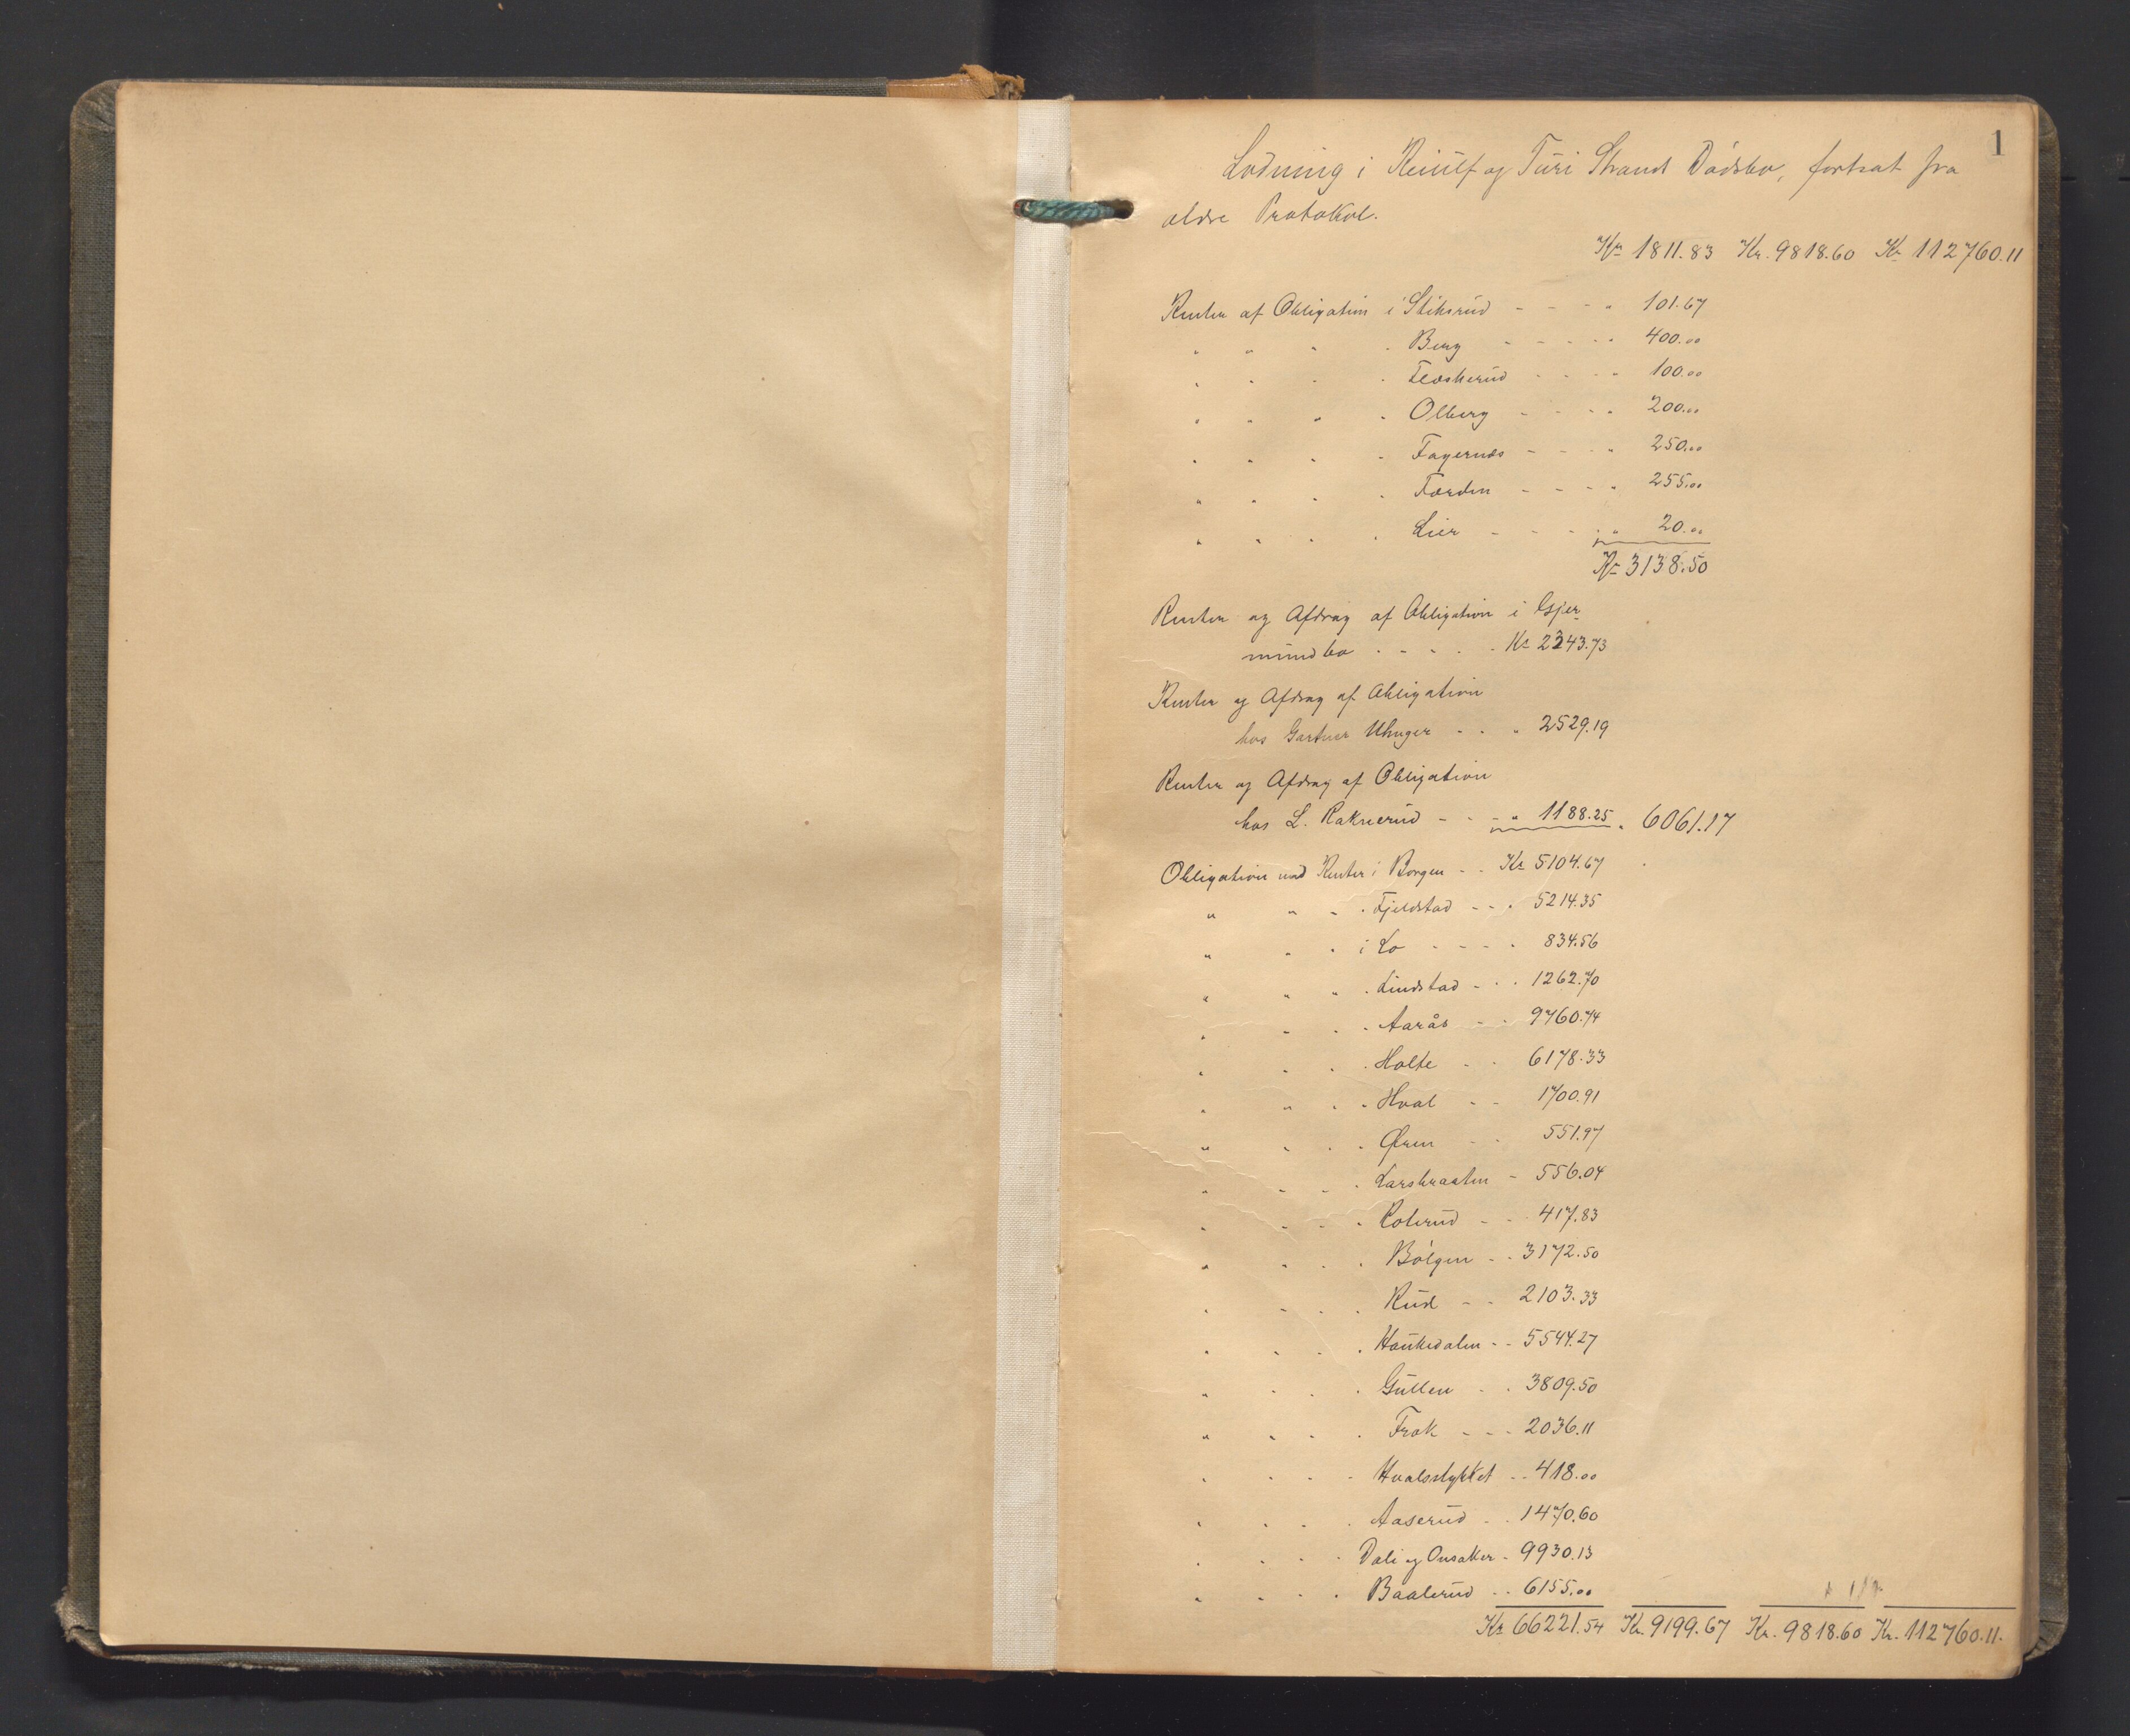 1
Lodning i Reiulf og Turi Strand Dødsbo, fortsat fra
ældre Protokol.
Kr 1811.83 Kr. 9818.60 Kr 112760.11
Renter af Obligation i Stiksrud - - - " 101.67
" " " " Berg - - - - " 400.00
" " " " Flaskerud - - - " 100.00
" " " " Olberg - - - " 200.00
" " " " Fagernes - - - " 250.00
" " " " Førden - - - " 255.00
" " " " Lier - - - " 20.00
Kr 3138.50
Renter og Afdrag af Obligation i Gjer
mundbo - - - - Kr 2343.73
Renter og Afdrag af Obligation
hos Gartner Unger - - " 2529.19
Renter og Afdrag af Obligation
hos L. Raknerud - - - " 1188.25 " 6061.17
Obligation med Renter i Borgen - - Kr 5104.67
" " " " Fjeldstad - - " 5214.35
" " " i Lo - - - - " 834.56
" " " " Lindstad - - " 1262.70
" " " " Aarås - - 9760.74
" " " " Holte - - 6178.33
" " " " Hval - - 1700.91
" " " " Øren - - 551.97
" " " " Larsbraaten - 556.04
" " " " Rolerud - - 417.83
" " " " Bølgen - - 3172.50
" " " " Rud - - 2103.33
" " " " Haukedalen - - 5544.27
" " " " Gullen - - 3809.50
" " " " Frok - - - 2036.11
" " " " Hvalsstykket - - 418.00
" " " " Aaserud - - 1470.60
" " " " Dali og Onsaker - 9930.13
" " " " Baalerud - - 6155.00
Kr 66221.54 Kr. 9199.67 Kr. 9818.60 Kr. 112760.11.